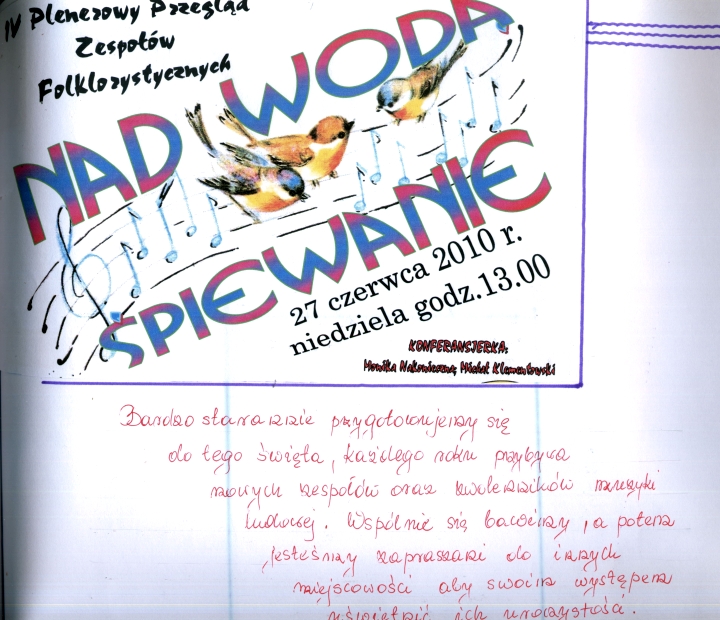 IV Plenerowy Przegląd
Zespołów
Folklorystycznych
NAD WODĄ
ŚPIEWANIE
27 czerwca 2010 r.
niedziela godz.13.00
KONFERANSJERKA:
Monika Nakonieczna, Michał Klementowski
Bardzo starannie przygotowujemy się
do tego święta, każdego roku przybywa
nowych zespołów oraz zwolenników muzyki
ludowej. Wspólnie się bawimy, a potem
jesteśmy zapraszani do innych
miejscowości aby swoim występem
uświetnić ich uroczystości.